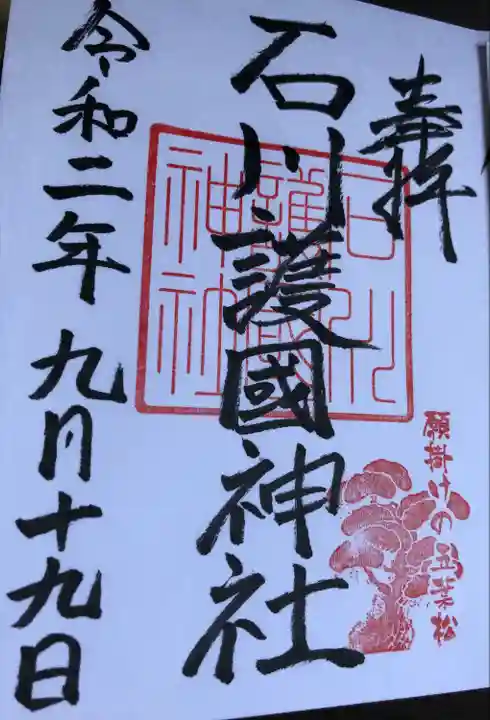 奉拝
石川護國神社
石川
護國
神社
願掛けの五葉松
令和二年九月十九日